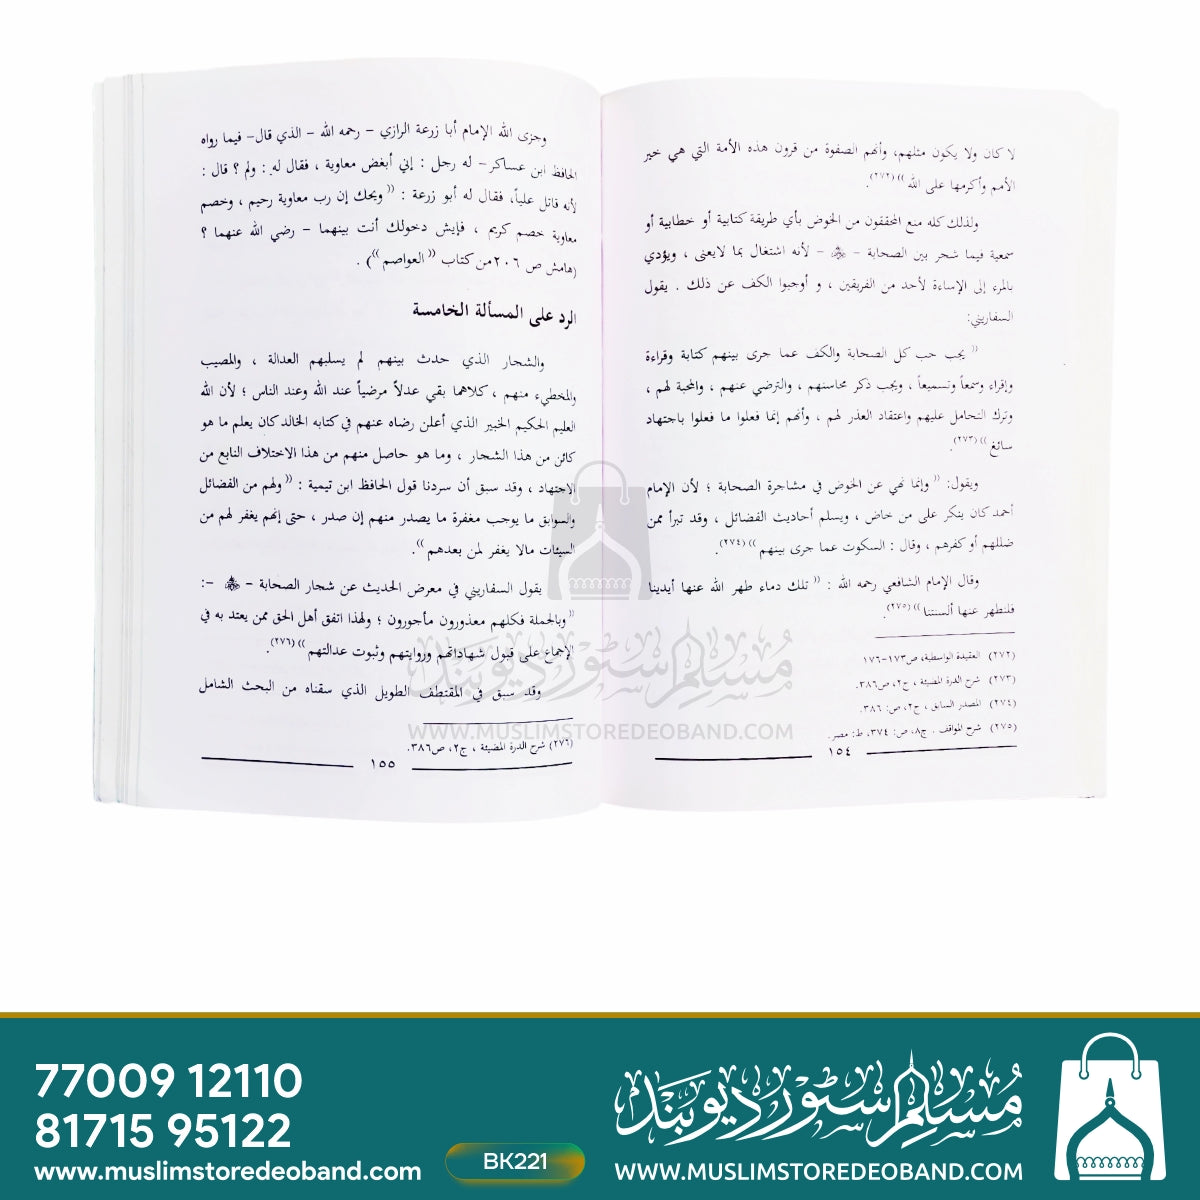 لا كان ولا يكون مثلهم، وأنهم الصفوة من قرون هذه الأمة التي هي خير
الأمم وأكرمها على الله )) (٢٧٢).
ولذلك كله منع المحققون من الخوض بأي طريقة كتابية أو خطابية أو
سمعية فيما شجر بين الصحابة - ﷺ - لأنه اشتغال بما لايعنى ، ويؤدي
بالمرء إلى الإساءة لأحد من الفريقين ، و أوجبوا الكف عن ذلك . يقول
السفاريني:
(( يجب حب كل الصحابة والكف عما جرى بينهم كتابة وقراءة
وإقراء وسمعاً وتسميعاً ، ويجب ذكر محاسنهم ، والترضي عنهم ، والمحبة لهم ،
وترك التحامل عليهم واعتقاد العذر لهم ، وأنهم إنما فعلوا ما فعلوا باجتهاد
سائغ )) (٢٧٣).
ويقول: (( وإنما نهي عن الخوض في مشاجرة الصحابة ؛ لأن الإمام
أحمد كان ينكر على من خاض ، ويسلم أحاديث الفضائل ، وقد تبرأ ممن
ضللهم أو كفرهم ، وقال : السكوت عما جرى بينهم )) (٢٧٤).
وقال الإمام الشافعي رحمه الله : (( تلك دماء طهر الله عنها أيدينا
فلنطهر عنها ألسنتنا )) (٢٧٥).
(٢٧٢) العقيدة الواسطية، ص١٧٣-١٧٦
(٢٧٣) شرح الدرة المضيئة ، ج٢، ص٣٨٦.
(٢٧٤) المصدر السابق ، ج٢، ص: ٣٨٦.
(٢٧٥) شرح المواقف . ج٨، ص: ٣٧٤، ط: مصر.
١٥٤
وجزى الله الإمام أبا زرعة الرازي - رحمه الله - الذي قال- فيما رواه
الحافظ ابن عساكر- له رجل : إني أبغض معاوية ، فقال له : ولم ؟ قال :
لأنه قاتل علياً، فقال له أبو زرعة : (( ويحك إن رب معاوية رحيم ، وخصم
معاوية خصم كريم ، فإيش دخولك أنت بينهما - رضي الله عنهما ؟
(هامش ص ٢٠٦ من كتاب (( العواصم )) ) .
الرد على المسألة الخامسة
والشجار الذي حدث بينهم لم يسلبهم العدالة ، والمصيب
والمخطيء منهم ، كلاهما بقي عدلاً مرضياً عند الله وعند الناس ؛ لأن الله
العليم الحكيم الخبير الذي أعلن رضاه عنهم في كتابه الخالد كان يعلم ما هو
كائن من هذا الشجار ، وما هو حاصل منهم من هذا الاختلاف النابع من
الاجتهاد ، وقد سبق أن سردنا قول الحافظ ابن تيمية : (( ولهم من الفضائل
والسوابق ما يوجب مغفرة ما يصدر منهم إن صدر ، حتى إنهم يغفر لهم من
السيئات مالا يغفر لمن بعدهم )).
يقول السفاريني في معرض الحديث عن شجار الصحابة - ﷺ -:
(( وبالجملة فكلهم معذورون مأجورون ؛ ولهذا اتفق أهل الحق ممن يعتد به في
الإجماع على قبول شهاداتهم وروايتهم وثبوت عدالتهم )) (٢٧٦).
وقد سبق في المقتطف الطويل الذي سقناه من البحث الشامل
(٢٧٦) شرح الدرة المضيئة ، ج٢، ص٣٨٦.
١٥٥
مسلم سٹور دیوبند
WWW.MUSLIMSTOREDEOBAND.COM
77009 12110
81715 95122
www.muslimstoredeoband.com
BK221
مسلم سٹور دیوبند
WWW.MUSLIMSTOREDEOBAND.COM